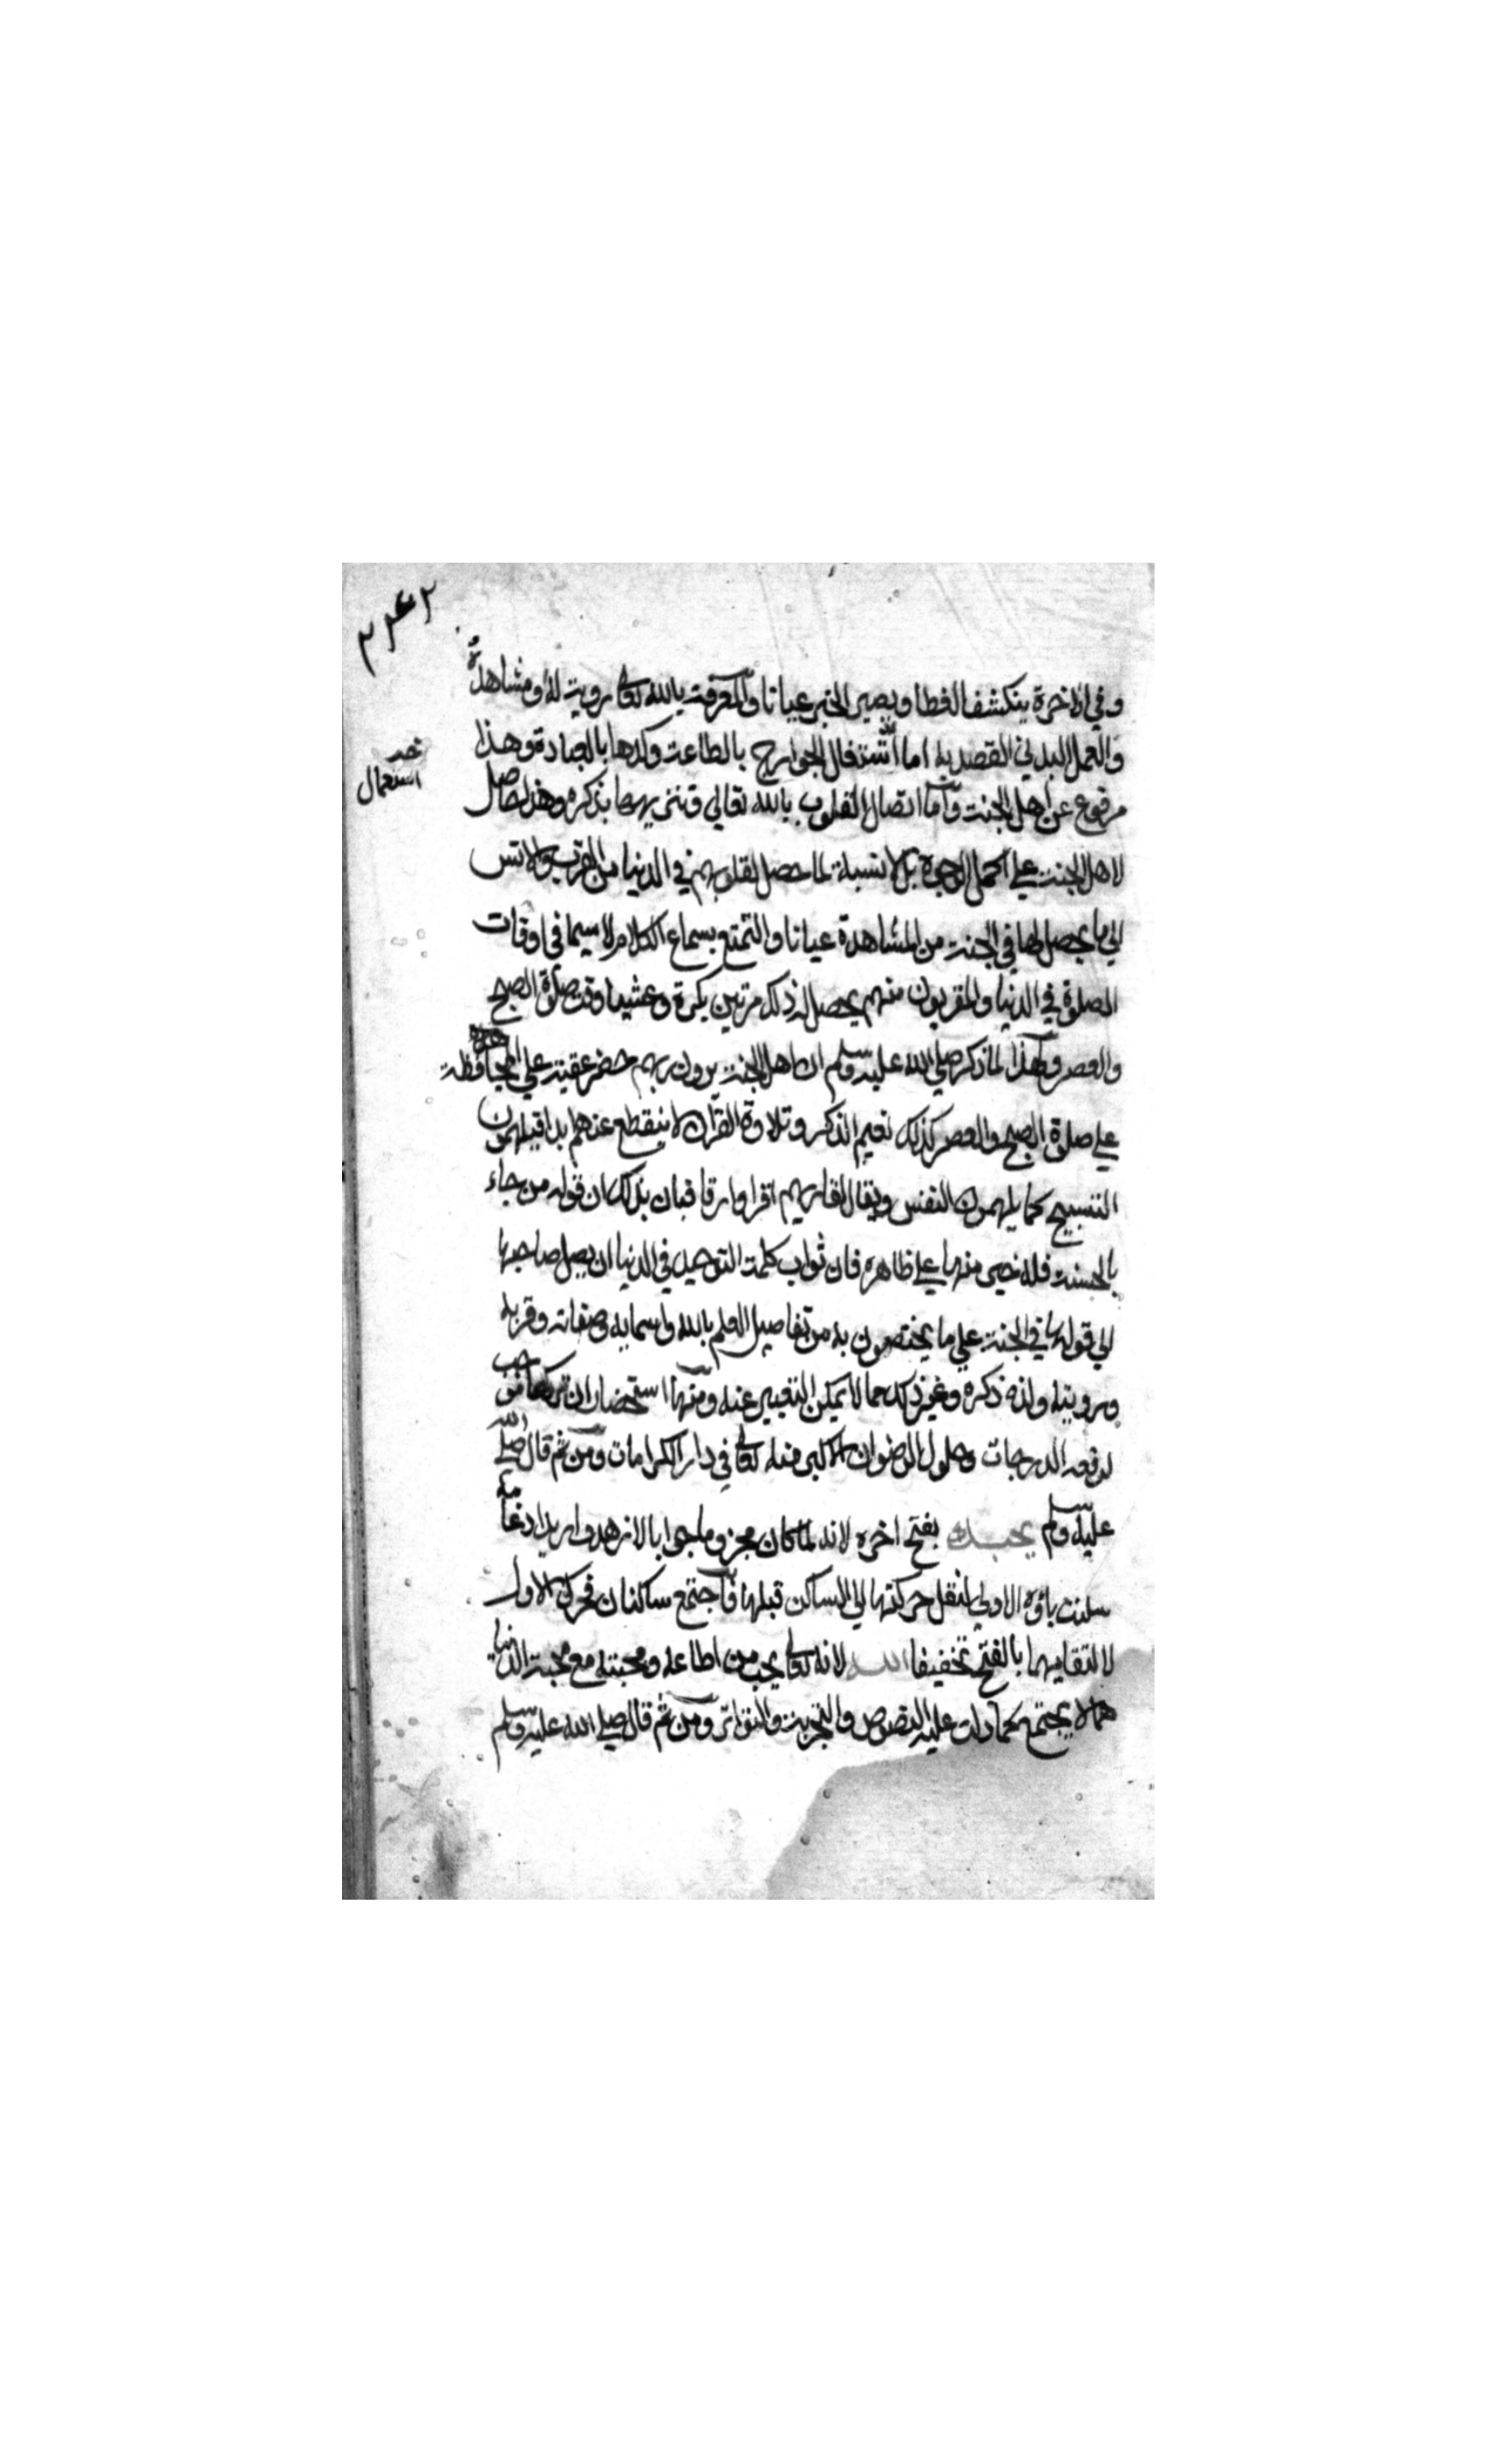 وفي الاخرة ينكشف الغطا ويصير الخبر عيانا والمعرفة بالله تعالى روية له ومشاهدة
والعمل البدني القصد به اما اشتغال الجوارح بالطاعة وكدها بالعبادة وهذا
مرفوع عن اهل الجنة واما اتصال القلوب بالله تعالي وتنويرها بذكره وهذا حاصل
لاهل الجنة علي اكمل الوجوه بل لا نسبة لما حصل لقلوبهم في الدنيا من القرب والانس
الي ما يحصل لها في الجنة من المشاهدة عيانا والتمتع بسماع الكلام لا سيما في اوقات
الصلوة في الدنيا والمقربون منهم يحصل له ذلك مرتين بكرة وعشيا وقت صلوة الصبح
والعصر ولهذا لما ذكر صلي الله عليه وسلم ان اهل الجنة يرون ربهم حض عقيبه علي المحافظة
علي صلوة الصبح والعصر كذلك نعيم الذكر وتلاوة القرآن لا ينقطع عنهم ابدا فيلهمون
التسبيح كما يلهمون النفس ويقال لقاريهم اقرا وارقا فبان بذلك ان قوله من جاء
بالحسنة فله خير منها علي ظاهره فان ثواب كلمة التوحيد في الدنيا ان يصل صاحبها
الي قولها في الجنة علي ما يختصون به من تفاصيل العلم بالله واسمايه وصفاته وقربه
ورويته ولذة ذكره وغير ذلك مما لا يمكن التعبير عنه ومنها استحضار ان تركها موجب
لرفعة الدرجات وحلول الرضوان الاكبر منه تعالى في دار الكرامات ومن ثم قال صلي الله
عليه وسلم يحبك بفتح اخره لانه لما كان مجزوما جوابا لازهد واريد ادغامه
سكنت باؤه الاولي لنقل حركتها الي الساكن قبلها فاجتمع ساكنان فحرك الاول
لالتقايهما بالفتح تخفيفا الله لانه تعالى يحب من اطاعه ومحبته مع محبة الدنيا
مما لا يجتمع كما دلت عليه النصوص والتجربة والتواتر ومن ثم قال صلي الله عليه وسلم
استعمال